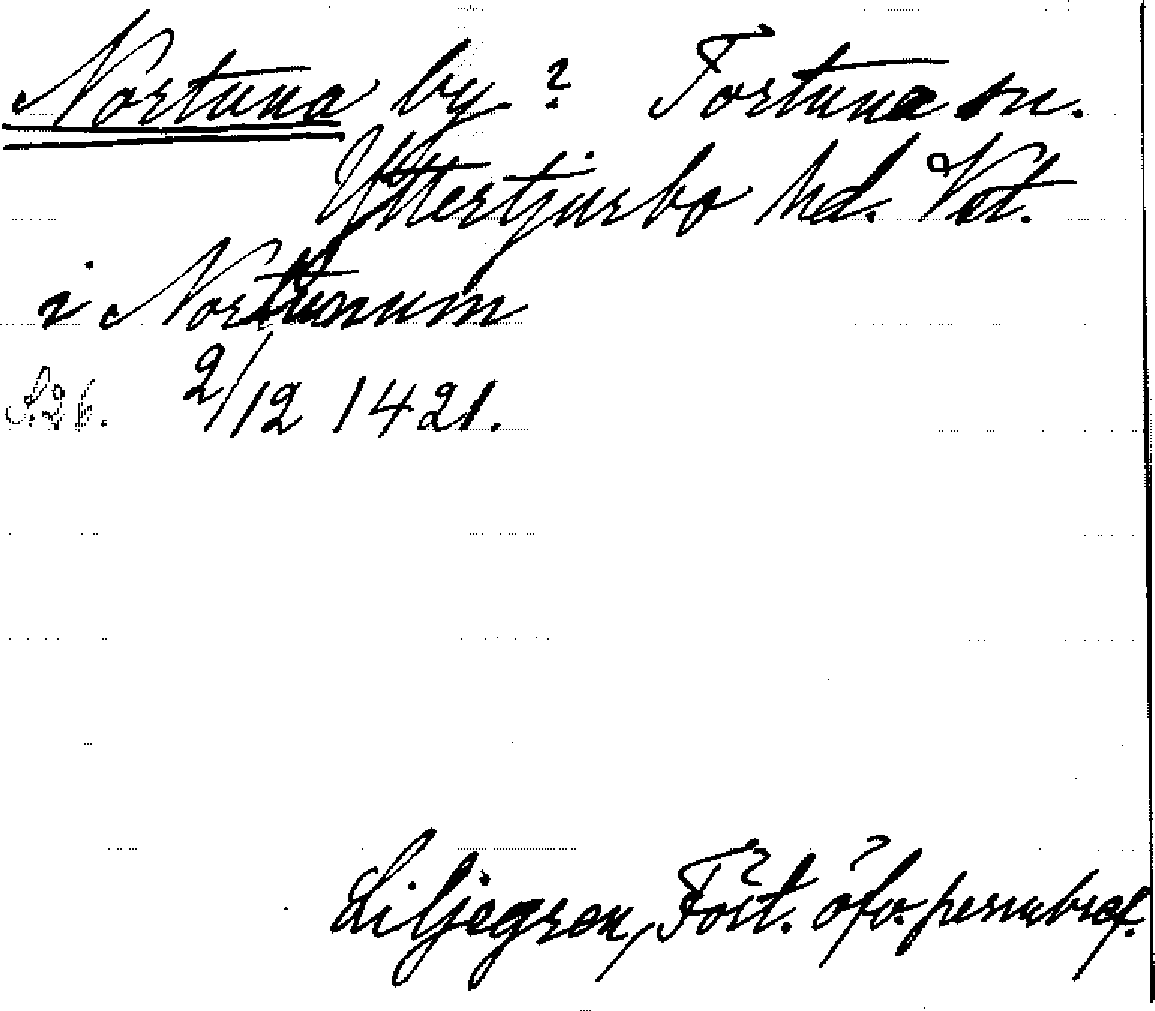 Nortuna by? Tortuna sn.
Yttertjurbo hd. Vst.
i Nortunum
S. 26. 2/12 1421.
Liljegren, Fört. öfv. permbref.